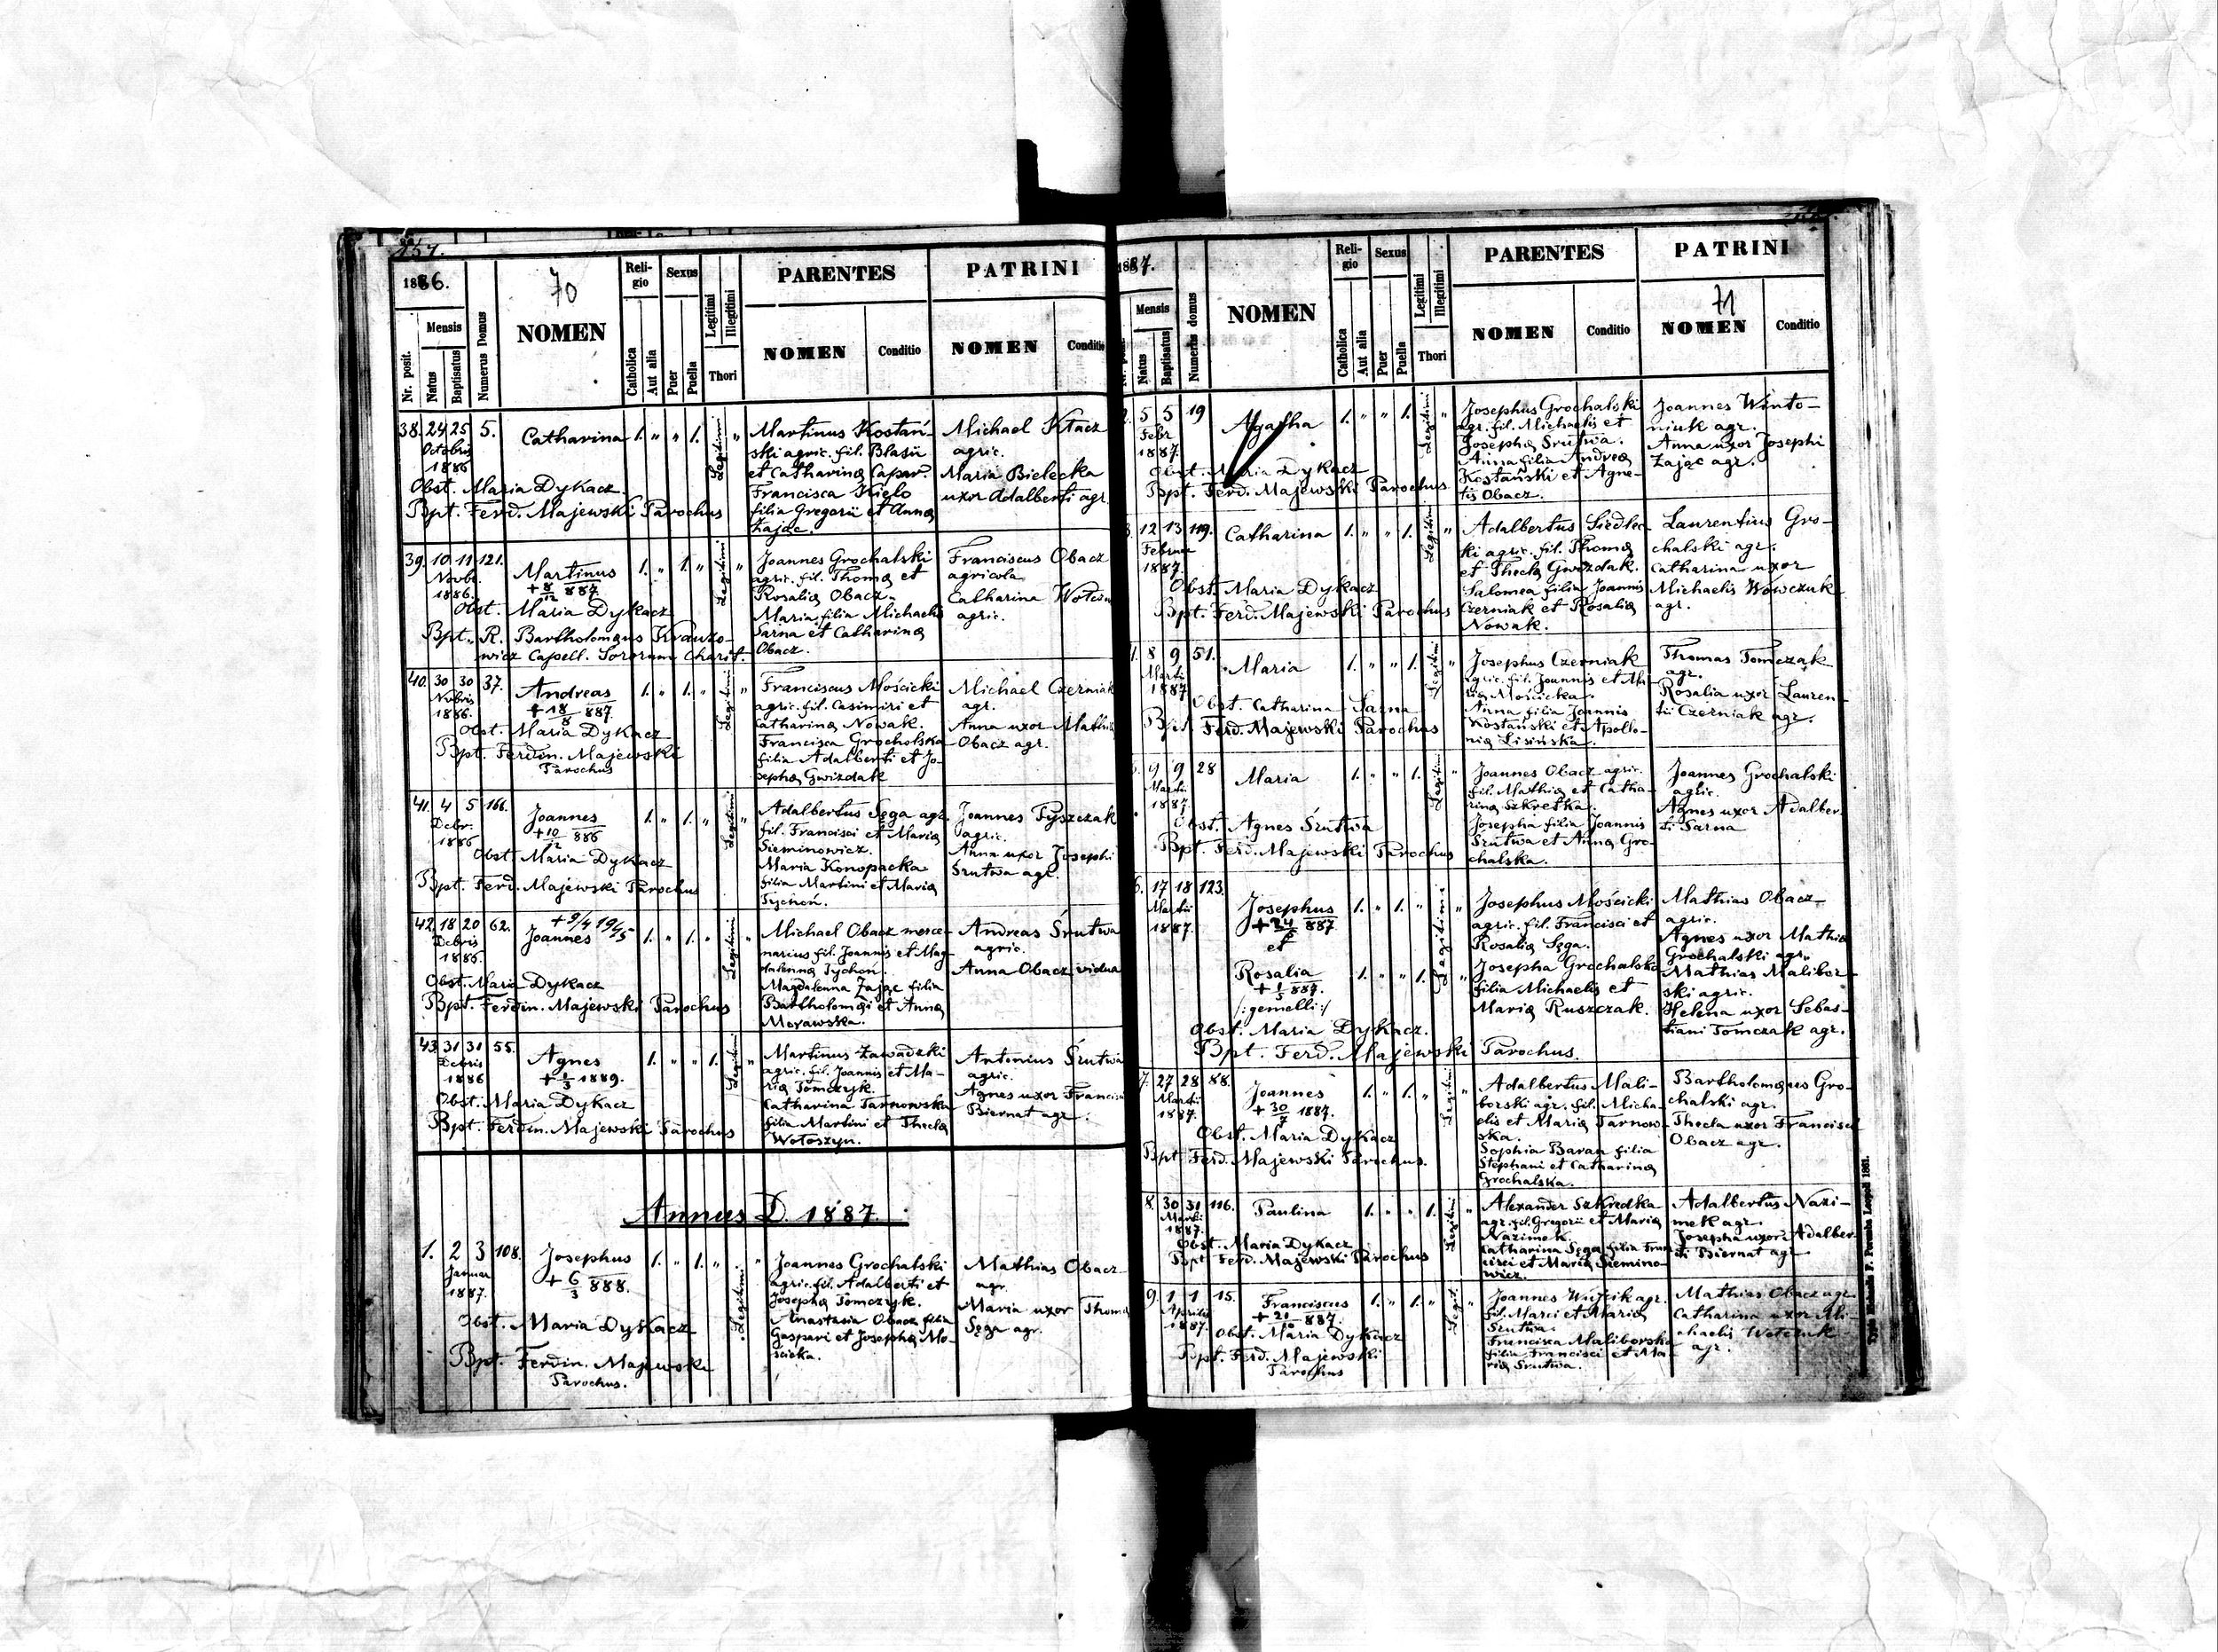 157.
1886.
70
Nr. posit.
Mensis
Natus
Baptisatus
Numerus Domus
NOMEN
Religio
Catholica
Aut alia
Sexus
Puer
Puella
Legitimi
Illegitimi
Thori
PARENTES
NOMEN
Conditio
PATRINI
NOMEN
Conditio
38. 24 25 5. Catharina 1. " " 1. Legitimi "
Octobris
1886
Obst. Maria Dykacz.
Bpt. Ferd. Majewski Parochus
Martinus Kostań-
ski agric. fil. Blasii
et Catharinæ Capar.
Francisca Kieło
filia Gregorii et Annæ
Zając.
Michael Kłacz
agric.
Maria Bielecka
uxor Adalberti agr.
39. 10 11 121. Martinus 1. " 1. " Legitimi "
Novbr.
1886.
+ 8/12 887
Obst. Maria Dykacz
Bpt. R. Bartholomæus Krauzo-
wicz Capell. Sororum Charit.
Joannes Grochalski
agric. fil. Thomæ et
Rosaliæ Obacz.
Maria filia Michaelis
Sarna et Catharinæ
Obacz.
Franciscus Obacz
agricola
Catharina
agric.
40. 30 30 37. Andreas 1. " 1. " Legitimi "
Novbris
1886.
+ 18/8 887.
Obst. Maria Dykacz
Bpt. Ferdin. Majewski
Parochus
Franciscus Mościcki
agric. fil. Casimiri et
Catharinæ Nowak.
Francisca Grochalska
filia Adalberti et Jo-
sephæ Gwizdak
Michael Czerniak
agr.
Anna uxor Mathiæ
Obacz agr.
41. 4 5 166. Joannes 1. " 1. " Legitimi "
Debr.
1886
+ 10/12 886
Obst. Maria Dykacz
Bpt. Ferd. Majewski Parochus
Adalbertus Sęga agr.
fil. Francisci et Mariæ
Sieminowicz.
Maria Konopacka
filia Martini et Mariæ
Tychoń.
Joannes Tyszczak
agric.
Anna uxor Josephi
Śrutwa agr.
42. 18 20 62. Joannes 1. " 1. " Legitimi "
Debris
1886.
+ 9/4 1945
Obst. Maria Dykacz
Bpt. Ferdin. Majewski Parochus
Michael Obacz merce-
narius fil. Joannis et Mag-
dalenæ Tychoń.
Magdalenna Zając filia
Bartholomæi et Annæ
Morawska.
Andreas Śrutwa
agric.
Anna Obacz vidua
43. 31 31 55. Agnes 1. " " 1. Legitimi "
Debris
1886
+ 1/3 1889.
Obst. Maria Dykacz
Bpt. Ferdin. Majewski Parochus
Martinus Zawadzki
agric. fil. Joannis et Ma-
riæ Tomczyk.
Catharina Tarnowska
filia Martini et Theclæ
Wołoszyn.
Antonius Śrutwa
agric.
Agnes uxor Francisci
Biernat agr.
Annus D. 1887.
1. 2 3 108. Josephus 1. " 1. " Legitimi "
Januar
1887.
+ 6/3 888.
Obst. Maria Dykacz
Bpt. Ferdin. Majewski
Parochus.
Joannes Grochalski
agric. fil. Adalberti et
Josephæ Tomczyk.
Anastasia Obacz filia
Gaspari et Josephæ Mo-
ścicka.
Mathias Obacz
agr.
Maria uxor Thomæ
Sęga agr.
1887.
71
Mensis
Natus
Baptisatus
Numerus domus
NOMEN
Religio
Catholica
Aut alia
Sexus
Puer
Puella
Legitimi
Illegitimi
Thori
PARENTES
NOMEN
Conditio
PATRINI
NOMEN
Conditio
5 5 19 Agatha 1. " " 1. Legitimi "
Febr
1887.
Obst. Maria Dykacz
Bpt. Ferd. Majewski Parochus
Josephus Grochalski
agr. fil. Michaelis et
Josephæ Śrutwa.
Anna filia Andreæ
Kostański et Agne-
tis Obacz.
Joannes Winto-
niuk agr.
Anna uxor Josephi
Zając agr.
12 13 119. Catharina 1. " " 1. Legitim "
Februar
1887.
Obst. Maria Dykacz
Bpt. Ferd. Majewski Parochus
Adalbertus Siedlec-
ki agric. fil. Thomæ
et Theclæ Gwizdak.
Salomea filia Joannis
Czerniak et Rosaliæ
Nowak.
Laurentius Gro-
chalski agr.
Catharina uxor
Michaelis Wowczuk
agr.
8 9 51. Maria 1. " " 1. Legitimi "
Martii
1887
Obst. Catharina Sarna
Bpt. Ferd. Majewski Parochus
Josephus Czerniak
agric. fil. Joannis et Ma-
riæ Mościcka.
Anna filia Joannis
Kostański et Apollo-
niæ Lisińska.
Thomas Tomczak
agr.
Rosalia uxor Lauren-
tii Czerniak agr.
9 9 28 Maria 1. " " 1. Legitimi "
Martii
1887.
Obst. Agnes Śrutwa
Bpt. Ferd. Majewski Parochus
Joannes Obacz agric.
fil. Mathiæ et Catha-
rinæ Szkretka.
Josepha filia Joannis
Śrutwa et Annæ Gro-
chalska.
Joannes Grochalski
agric.
Agnes uxor Adalber-
ti Sarna
6. 17 18 123. Josephus 1. " 1. " Legitimi "
Martii
1887.
887
et
Rosalia 1. " " 1. "
+ 1/5 887.
/:gemelli:/
Obst. Maria Dykacz.
Bpt. Ferd. Majewski Parochus.
Josephus Mościcki
agric. fil. Francisci et
Rosaliæ Sęga.
Josepha Grochalska
filia Michaelis et
Mariæ Ruszczak.
Mathias Obacz
agric.
Agnes uxor Mathiæ
Grochalski agr.
Mathias Malibor-
ski agric.
Helena uxor Sebas-
tiani Tomczak agr.
7. 27 28 88. Joannes 1. " 1. " Legitimi "
Martii
1887.
+ 30/7 1887.
Obst. Maria Dykacz
Bpt Ferd. Majewski Parochus.
Adalbertus Mali-
borski agr. fil. Micha-
elis et Mariæ Tarnow-
ska.
Sophia Baran filia
Stephani et Catharinæ
Grochalska.
Bartholomæus Gro-
chalski agr.
Thecla uxor Francisci
Obacz agr.
8. 30 31 116. Paulina 1. " " 1. Legitimi "
Martii
1887.
Obst. Maria Dykacz
Bpt Ferd. Majewski Parochus
Alexander Szkredka
agr. fil. Gregorii et Mariæ
Nazimek.
Catharina Sęga filia Fran-
cisci et Mariæ Siemino-
wicz.
Adalbertus Nazi-
mek agr.
Josepha uxor Adalber-
ti Biernat agr
9. 1 1 15. Franciscus 1. " 1. " Legit. "
Aprilis
1887.
+ 21/10 887.
Obst. Maria Dykacz
Bpt. Ferd. Majewski
Parochus
Joannes Wójcik agr.
fil. Marci et Mariæ
Śrutwa.
Francisca Maliborska
filia Francisci et Ma-
riæ Śrutwa.
Mathias Obacz agr.
Catharina uxor Mi-
chaelis
agr.